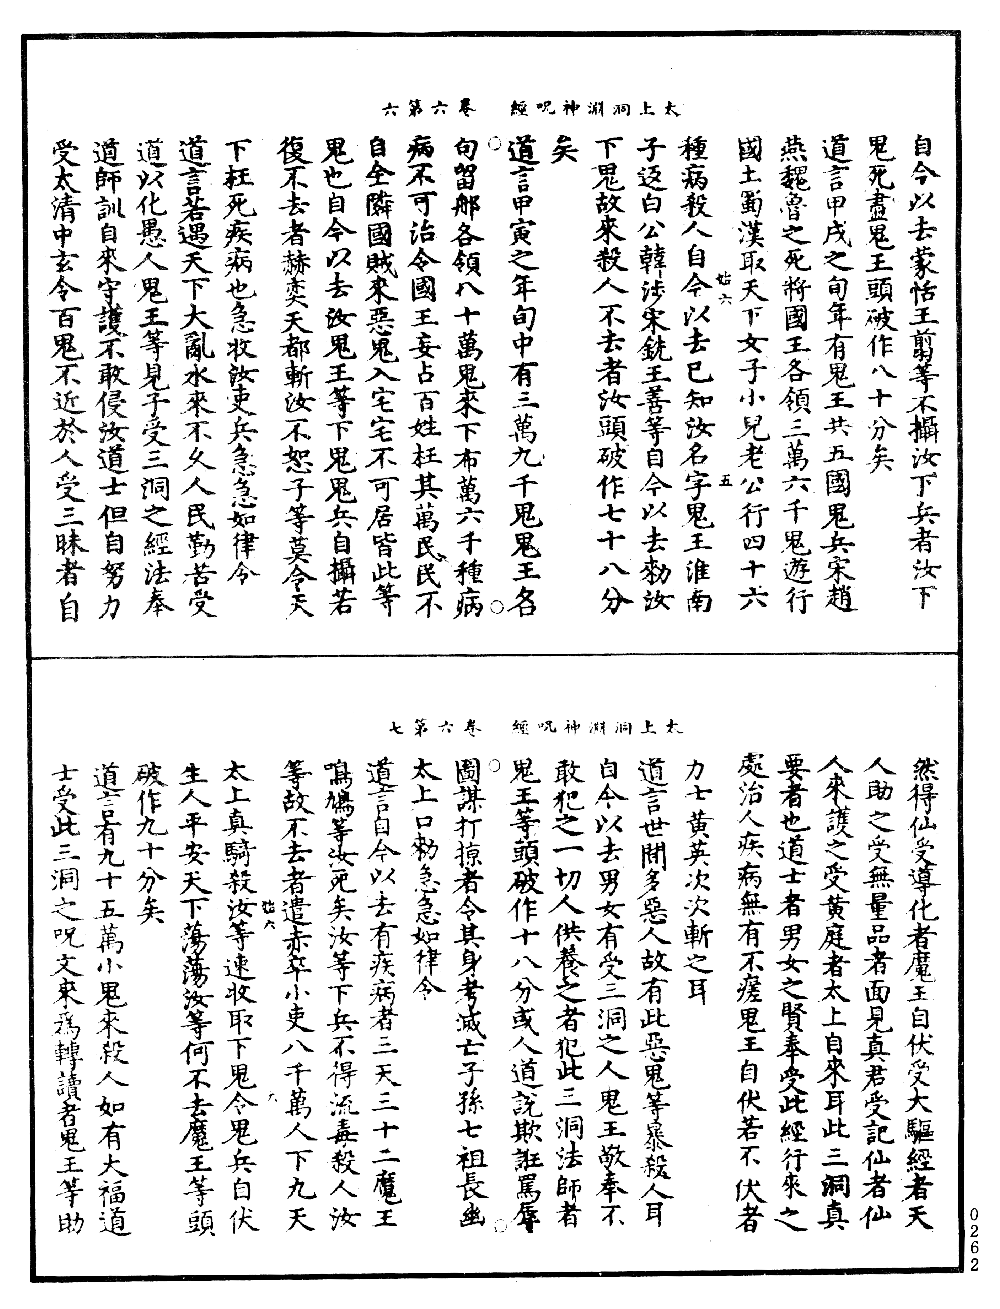 太上洞淵神呪經　卷六第六
自今以去蒙恬王翦等不攝汝下兵者汝下
鬼死盡鬼王頭破作八十分矣
道言甲戌之旬年有鬼王共五國鬼兵宋趙
燕魏魯之死將國王各領三萬六千鬼遊行
國土蜀漢取天下女子小兒老公行四十六
始六　五
種病殺人自今以去已知汝名字鬼王淮南
子返白公韓涉宋銃王善等自今以去勑汝
下鬼故來殺人不去者汝頭破作七十八分
矣
道言甲寅之年旬中有三萬九千鬼鬼王名
句留那各領八十萬鬼來下布萬六千種病
病不可治令國王妄占百姓枉其萬民民不
自全隣國賊來惡鬼入宅宅不可居皆此等
鬼也自今以去汝鬼王等下鬼鬼兵自攝若
復不去者赫奕天都斬汝不恕子等莫令天
下枉死疾病也急收汝吏兵急急如律令
道言若遇天下大亂水來不久人民勤苦受
道以化愚人鬼王等見子受三洞之經法奉
道師訓自來守護不敢侵汝道士但自努力
受太清中玄令百鬼不近於人受三昧者自
太上洞淵神呪經　卷六第七
然得仙受導化者魔王自伏受大驅經者天
人助之受無量品者面見真君受記仙者仙
人來護之受黄庭者太上自來耳此三洞真
要者也道士者男女之賢奉受此經行來之
處治人疾病無有不瘥鬼王自伏若不伏者
力士黄英次次斬之耳
道言世間多惡人故有此惡鬼等暴殺人耳
自今以去男女有受三洞之人鬼王敬奉不
敢犯之一切人供養之者犯此三洞法師者
鬼王等頭破作十八分或人道說欺誑罵辱
圖謀打掠者令其身考滅亡子孫七祖長幽
太上口勑急急如律令
道言自今以去有疾病者三天三十二魔王
鳴鳩等汝死矣汝等下兵不得流毒殺人汝
等故不去者遣赤卒小吏八千萬人下九天
始六　六
太上真騎殺汝等速收取下鬼令鬼兵自伏
生人平安天下蕩蕩汝等何不去魔王等頭
破作九十分矣
道言有九十五萬小鬼來殺人如有大福道
士受此三洞之呪文來爲轉讀者鬼王等助
0262